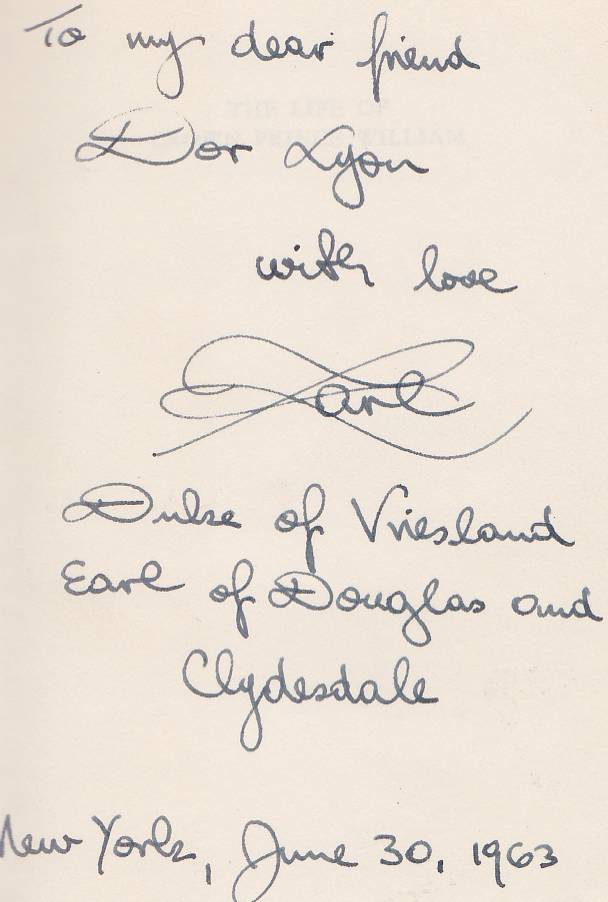 To my dear friend
Dor Lyon
with love
Karl
Duke of Vriesland
Earl of Douglas and
Clydesdale
New York, June 30, 1963
THE LIFE OF
CROWN PRINCE WILLIAM